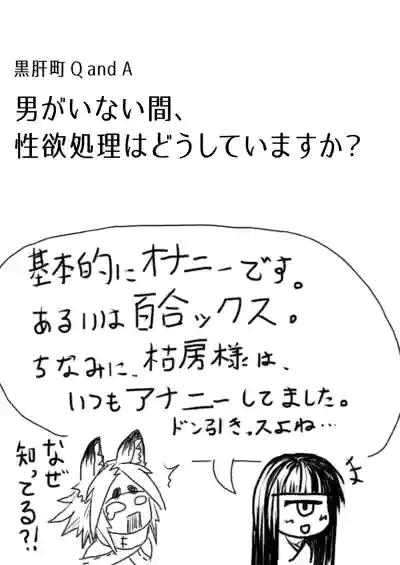 黒肝町 Q and A
男がいない間、
性欲処理はどうしていますか？
基本的にオナニーです。
あるいは百合ックス。
ちなみに、枯房様は、
いつもアナニーしてました。
ドン引きっスよね…
なぜ
知ってる?!